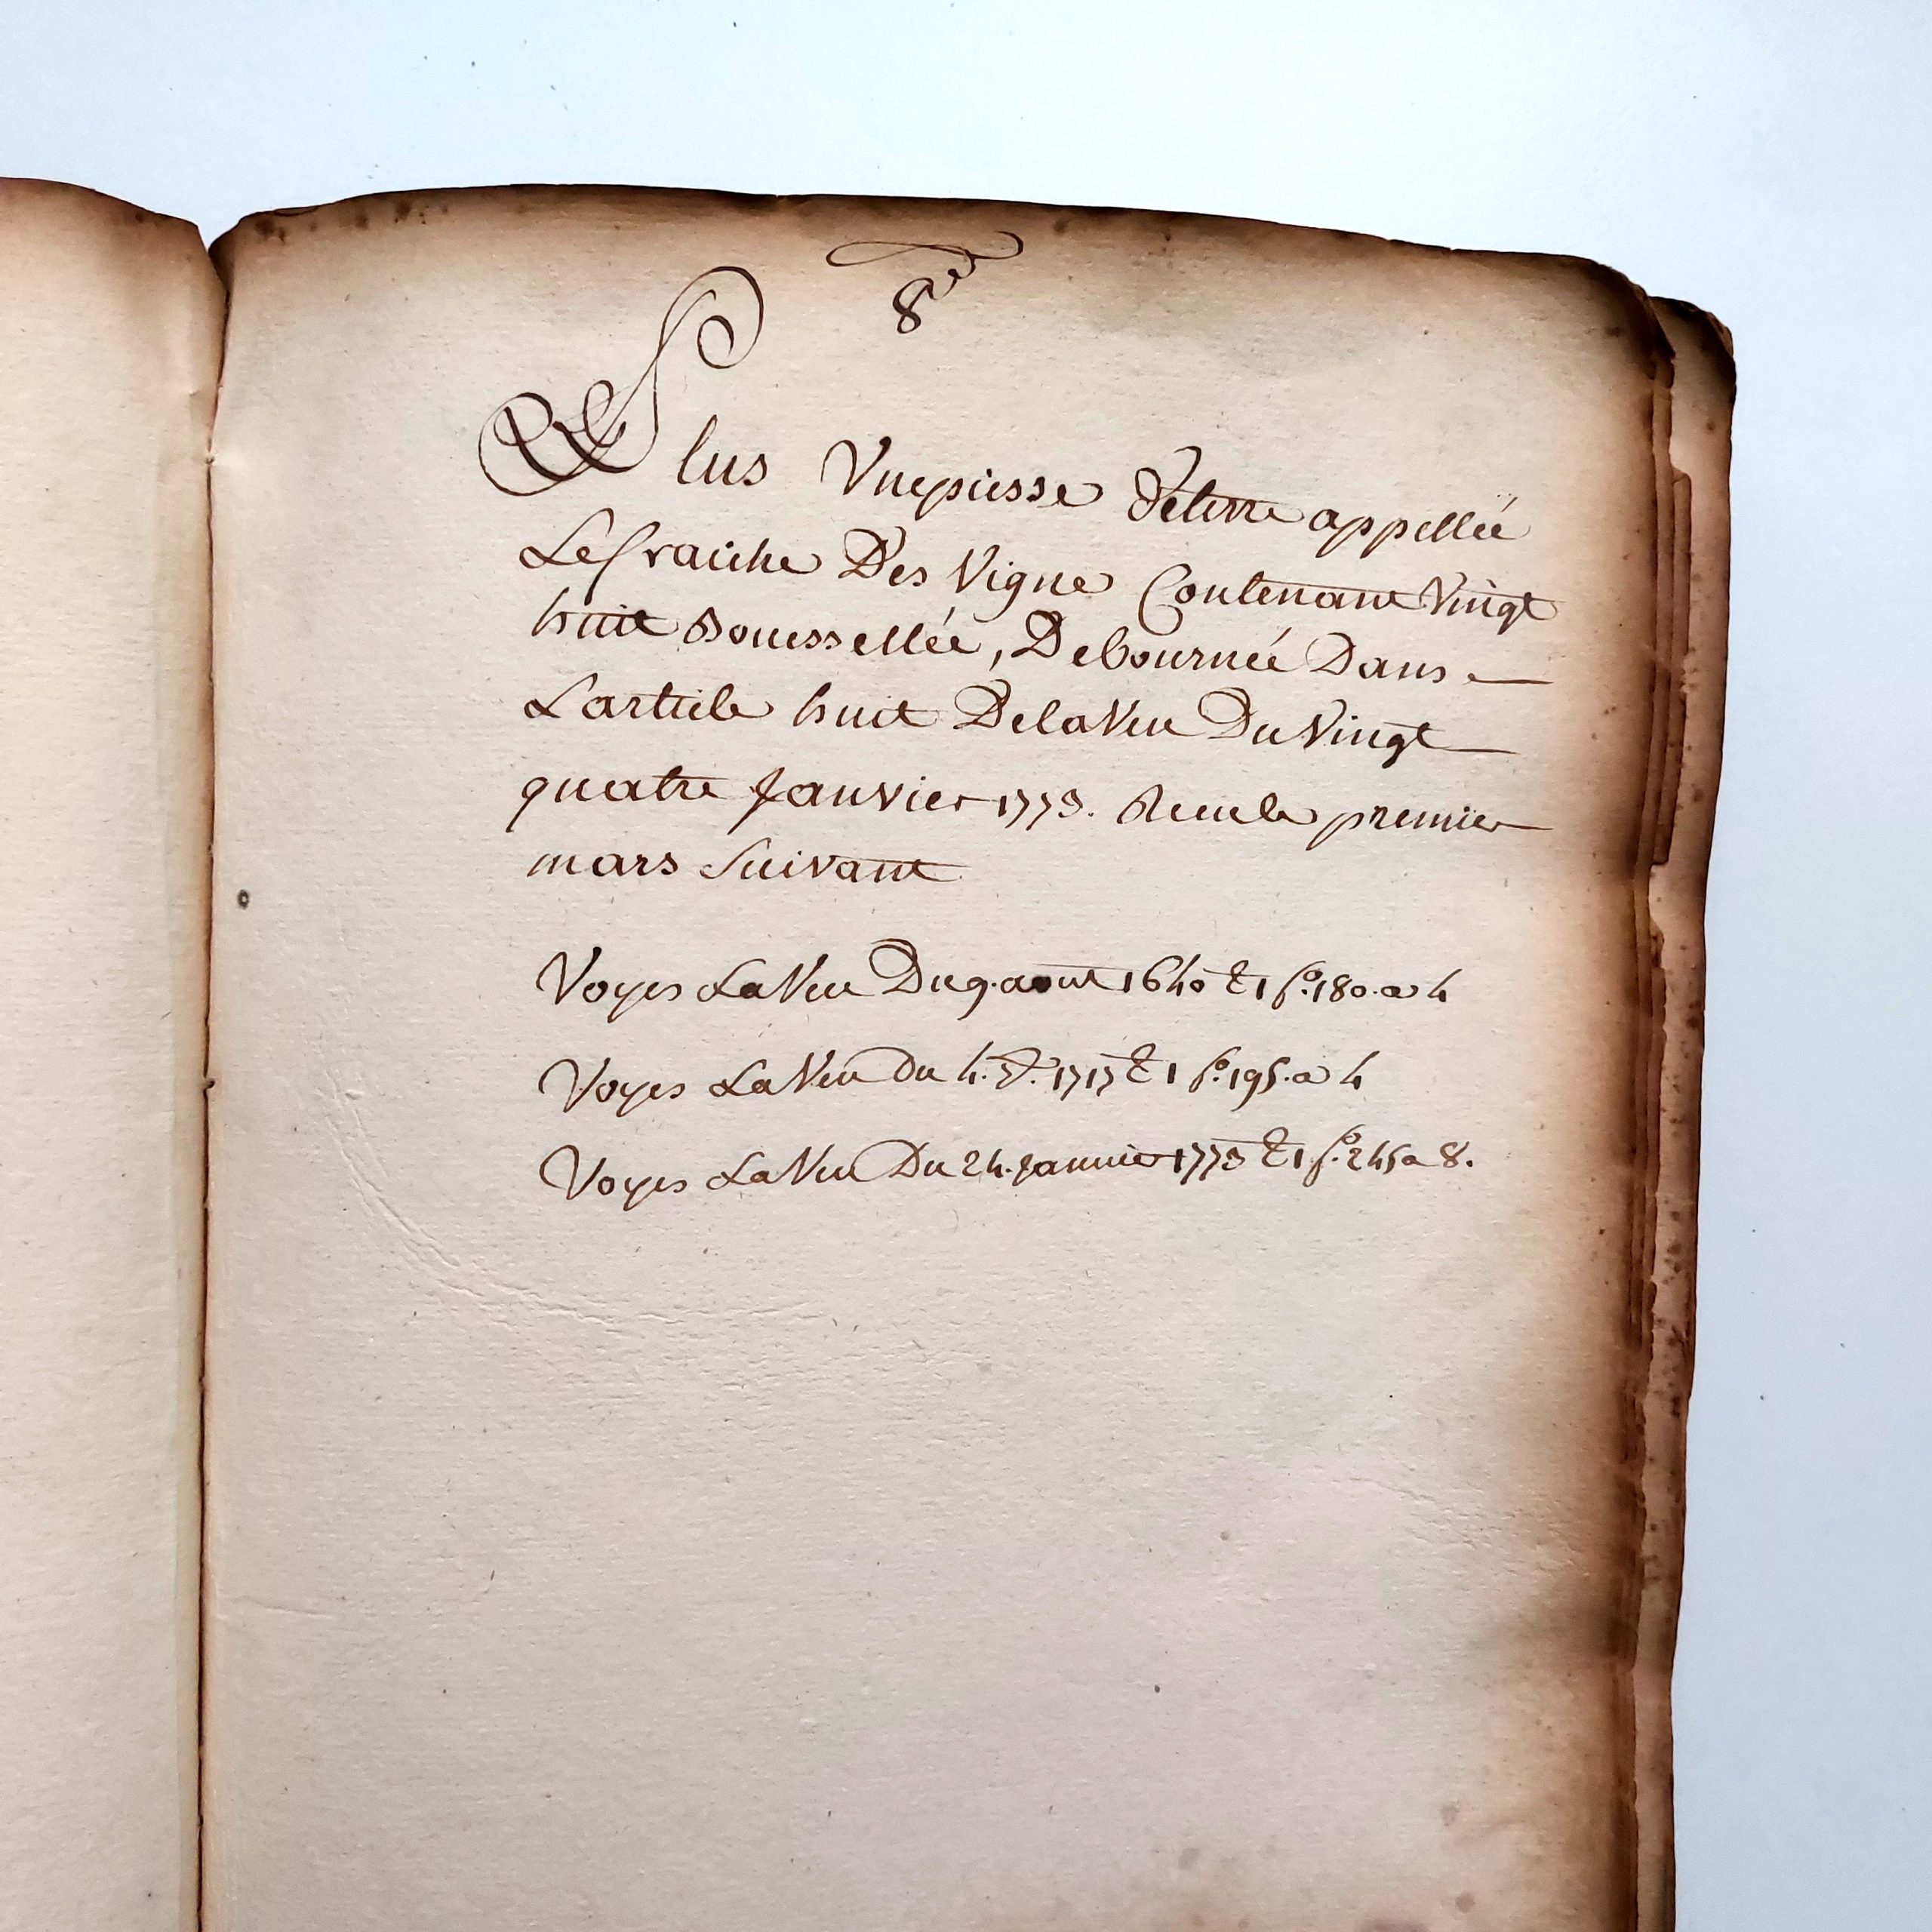 8e
Plus Vne piesse de terre appellée
Le fraiche Des Vigne Contenant Vingt
huit Bouessellée, Debournée Dans
L'article huit De laveu Du Vingt
quatre Janvier 1773. Receu le premier
mars Suivant
Voyes LaVeu Du 9. aout 1640 t 1 fo. 180. a 4
Voyes LaVeu Du 4. 1717 t 1 fo. 195. a 4
Voyes LaVeu Du 24. Janvier 1773 t 1 fo. 245 a 8.